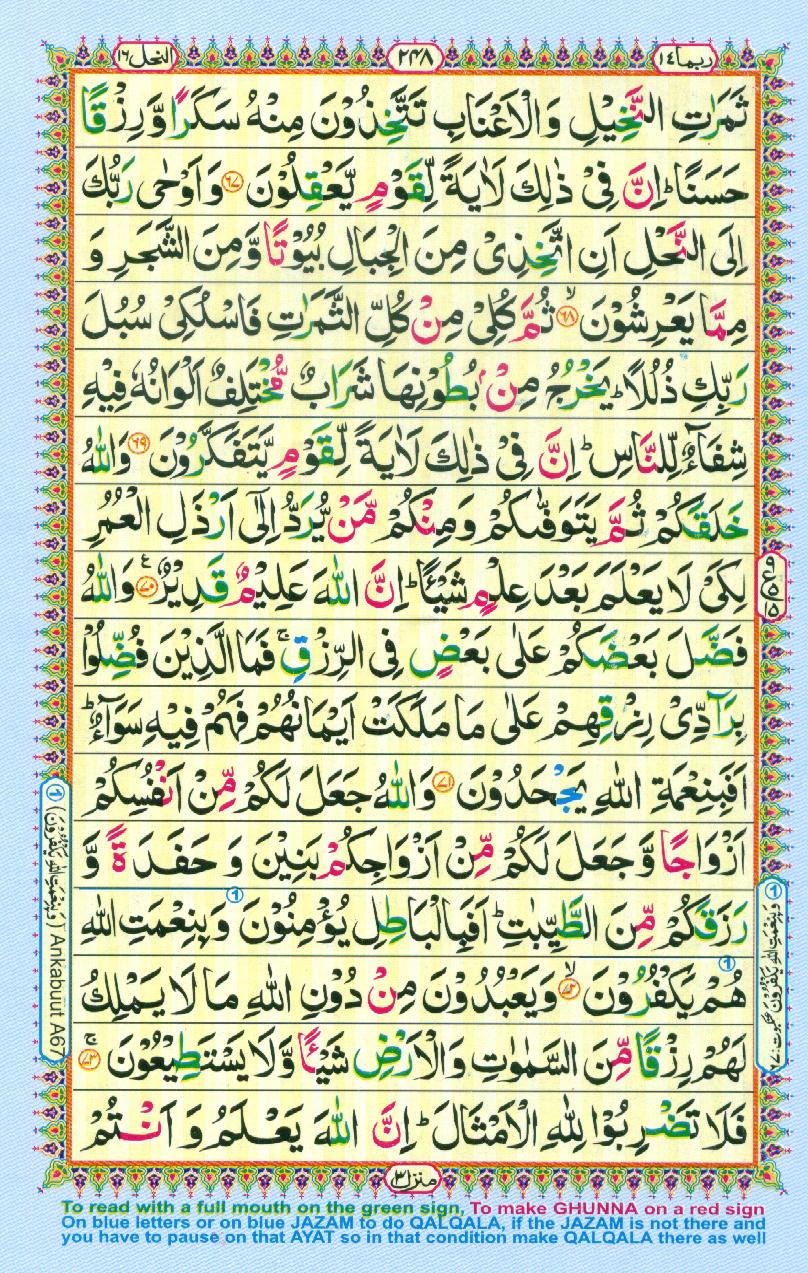 ربما ١٤
٢٤٨
النحل ١٦
ثَمَرٰتِ النَّخِیْلِ وَالْاَعْنَابِ تَتَّخِذُوْنَ مِنْهُ سَكَرًا وَّرِزْقًا
حَسَنًا ؕ اِنَّ فِیْ ذٰلِكَ لَاٰیَةً لِّقَوْمٍ یَّعْقِلُوْنَ ﴿٦٧﴾ وَاَوْحٰی رَبُّكَ
اِلَی النَّحْلِ اَنِ اتَّخِذِیْ مِنَ الْجِبَالِ بُیُوْتًا وَّمِنَ الشَّجَرِ وَ
مِمَّا یَعْرِشُوْنَ ﴿٦٨﴾ۙ ثُمَّ كُلِیْ مِنْ كُلِّ الثَّمَرٰتِ فَاسْلُكِیْ سُبُلَ
رَبِّكِ ذُلُلًا ؕ یَخْرُجُ مِنْۢ بُطُوْنِهَا شَرَابٌ مُّخْتَلِفٌ اَلْوَانُهٗ فِیْهِ
شِفَآءٌ لِّلنَّاسِ ؕ اِنَّ فِیْ ذٰلِكَ لَاٰیَةً لِّقَوْمٍ یَّتَفَكَّرُوْنَ ﴿٦٩﴾ وَاللّٰهُ
خَلَقَكُمْ ثُمَّ یَتَوَفّٰىكُمْ وَمِنْكُمْ مَّنْ یُّرَدُّ اِلٰۤی اَرْذَلِ الْعُمُرِ
لِكَیْ لَا یَعْلَمَ بَعْدَ عِلْمٍ شَیْـًٔا ؕ اِنَّ اللّٰهَ عَلِیْمٌ قَدِیْرٌ ﴿٧٠﴾ۧ وَاللّٰهُ
فَضَّلَ بَعْضَكُمْ عَلٰی بَعْضٍ فِی الرِّزْقِ ۚ فَمَا الَّذِیْنَ فُضِّلُوْا
بِرَآدِّیْ رِزْقِهِمْ عَلٰی مَا مَلَكَتْ اَیْمَانُهُمْ فَهُمْ فِیْهِ سَوَآءٌ ؕ
اَفَبِنِعْمَةِ اللّٰهِ یَجْحَدُوْنَ ﴿٧١﴾ وَاللّٰهُ جَعَلَ لَكُمْ مِّنْ اَنْفُسِكُمْ
اَزْوَاجًا وَّجَعَلَ لَكُمْ مِّنْ اَزْوَاجِكُمْ بَنِیْنَ وَ حَفَدَةً وَّ
رَزَقَكُمْ مِّنَ الطَّیِّبٰتِ ؕ اَفَبِالْبَاطِلِ یُؤْمِنُوْنَ وَبِنِعْمَتِ اللّٰهِ ①
هُمْ یَكْفُرُوْنَ ① ﴿٧٢﴾ۙ وَیَعْبُدُوْنَ مِنْ دُوْنِ اللّٰهِ مَا لَا یَمْلِكُ
لَهُمْ رِزْقًا مِّنَ السَّمٰوٰتِ وَالْاَرْضِ شَیْـًٔا وَّلَا یَسْتَطِیْعُوْنَ ﴿٧٣﴾ۚ
فَلَا تَضْرِبُوْا لِلّٰهِ الْاَمْثَالَ ؕ اِنَّ اللّٰهَ یَعْلَمُ وَ اَنْتُمْ
① (وَبِنِعْمَتِ اللّٰهِ یَكْفُرُوْنَ) Ankabuut A67
① وَبِنِعْمَةِ اللّٰهِ یَكْفُرُوْنَ
منزل ٣
To read with a full mouth on the green sign, To make GHUNNA on a red sign
On blue letters or on blue JAZAM to do QALQALA, if the JAZAM is not there and
you have to pause on that AYAT so in that condition make QALQALA there as well